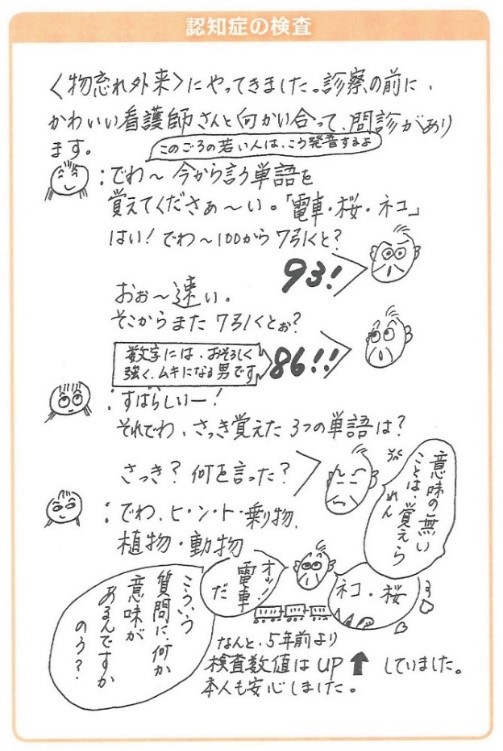 認知症の検査
〈物忘れ外来〉にやってきました。診察の前に、
かわいい看護師さんと向かい合って、問診があり
ます。
このごろの若い人は、こう発音するよ
:でわ〜今から言う単語を
覚えてくださぁ〜い。「電車・桜・ネコ」
はい!でわ〜100から7引くと?
93!
おぉ〜速い。
そこからまた7引くとぉ?
数字には、おそろしく
強く、ムキになる男です
86!!
:すばらしいー!
それでわ、さっき覚えた3つの単語は?
さっき?何を言った?
意味の無い
ことは、覚えら
れん
:でわ、ヒ・ン・ト・乗り物、
植物・動物
オッ!
電車
だ
ネコ・桜
こういう
質問に、何か
意味が
あるんですか
のう?
なんと、5年前より
検査数値はUP⬆していました。
本人も安心しました。